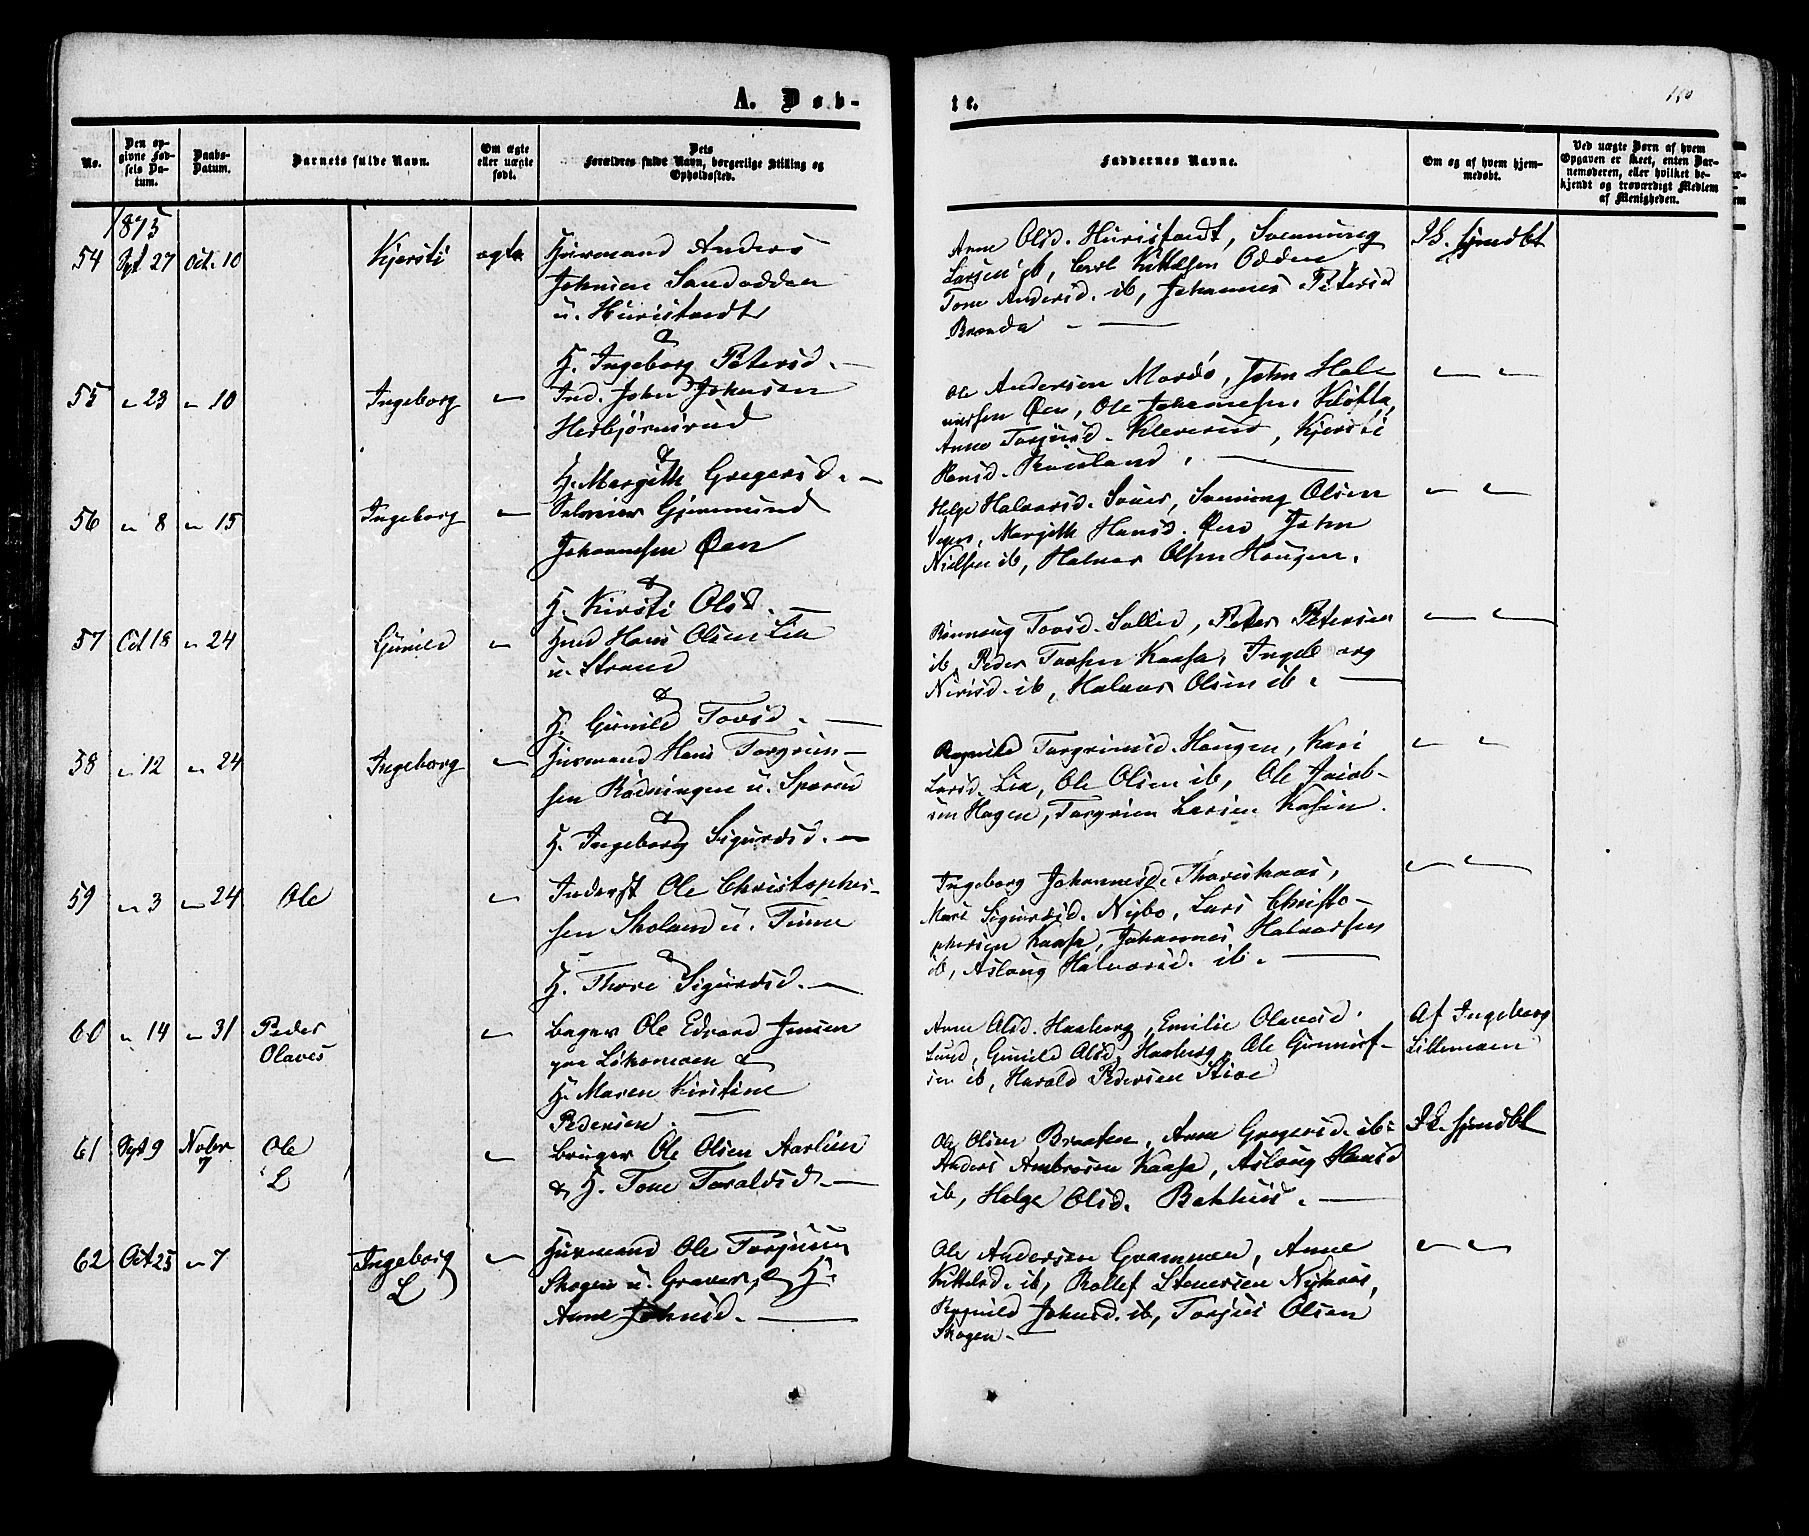 A. Døb-
te.
190
No.
Den op-
givne Fød-
sels Da-
tum.
Daabs-
Datum.
Barnets fulde Navn.
Om ægte
eller uægte
født.
Dets
Forældres fulde Navn, borgerlige Stilling og
Opholdssted.
Faddernes Navne.
Om og af hvem hjem-
medøbt.
Ved uægte Børn af hvem
Opgaven er skeet, enten Bar-
nemoderen, eller hvilket be-
kjendt og troværdigt Medlem
af Menigheden.
1875
54 Spt 27 Oct. 10 Kjersti ægte Huusmand Anders
Johnsen Sandodden
u. Huristvedt
&
H. Ingeborg Petersd.
Anne Olsd. Huristvedt, Svenning
Larsen ib, Carl Kittelsen Odden
Tone Andersd. ib, Johannes Petersen
Brænda
I K. hjmdbt
55 " 23 " 10 Ingeborg " Ind. John Johnsen
Herbjørnsrud
&
H. Margith Gregersd.
Ole Andersen Mordø, John Hal-
vorsen Øen, Ole Johannesen Kløfta,
Anne Torjusd. Kleverud, Kjersti
Hansd. Rouland.
" "
56 " 8 " 15 Ingeborg " Selveier Gjermund
Johannesen Øen
&
H. Kirsti Olsd.
Helge Halvorsd. Svenning Olsen
Margith Hansd. Øen, John
Nielsen ib, Halvor Olsen Haugen.
" "
57 Oct 18 " 24 Gunild " Hmd Hans Olsen Lia
u. Strand
&
H. Gunild Tovsd.
Rønnoug Tovsd. Sollid, Peter Petersen
ib, Peder Tovsen Kaasa, Ingeborg
Nirisd. ib, Halvor Olsen ib.
" "
58 " 12 " 24 Ingeborg " Husmand Hans Torgrim-
sen Rødningen u. Sperud
&
H. Ingeborg Sigurdsd.
Ragnild Torgrimsd. Haugen, Kari
Larsd. Lia, Ole Olsen ib, Ole Jacob-
sen Hagen, Torgrim Larsen Kasin.
" "
59 " 3 " 24 Ole " Inderst Ole Christopher-
sen Skoland u. Tinne
&
H. Thore Sigurdsd.
Ingeborg Johannesd. Thorishaas,
Mari Sigurdsd. Nybo, Lars Christo-
phersen Kaasa, Johannes Halvorsen
ib, Aslaug Halvorsd. ib.
" "
60 " 14 " 31 Peder
Olaves
" Bager Ole Edvard Jensen
paa Lihomoen &
H. Maren Kirstine
Pedersen.
Anne Olsd. Haaberg, Emilie Olavesd.
Lund, Gunild Olsd. Haaberg, Ole Gunnuf-
sen ib, Harald Pedersen Stive
Af Ingeborg
Lillemoen
61 Spt 9 Nobr
7
Ole
L
" Bruger Ole Olsen Aarlien
& H. Tone Toraldsd.
Ole Olsen Braaten, Anne Gregersd. ib
Anders Ambrosen Kaasa, Aslaug Hansd
ib, Helge Olsd. Bakhus.
I K. hjmdbt
62 Oct 25 " 7 Ingeborg
L
" Husmand Ole Torjusen
Skogen u. Graver, & H.
Anne Johnsd.
Ole Andersen Gvammen, Anne
Kittelsd. ib, Rollef Stenersen Nykaas,
Ragnild Johnsd. ib, Torjus Olsen
Skogen.
" "